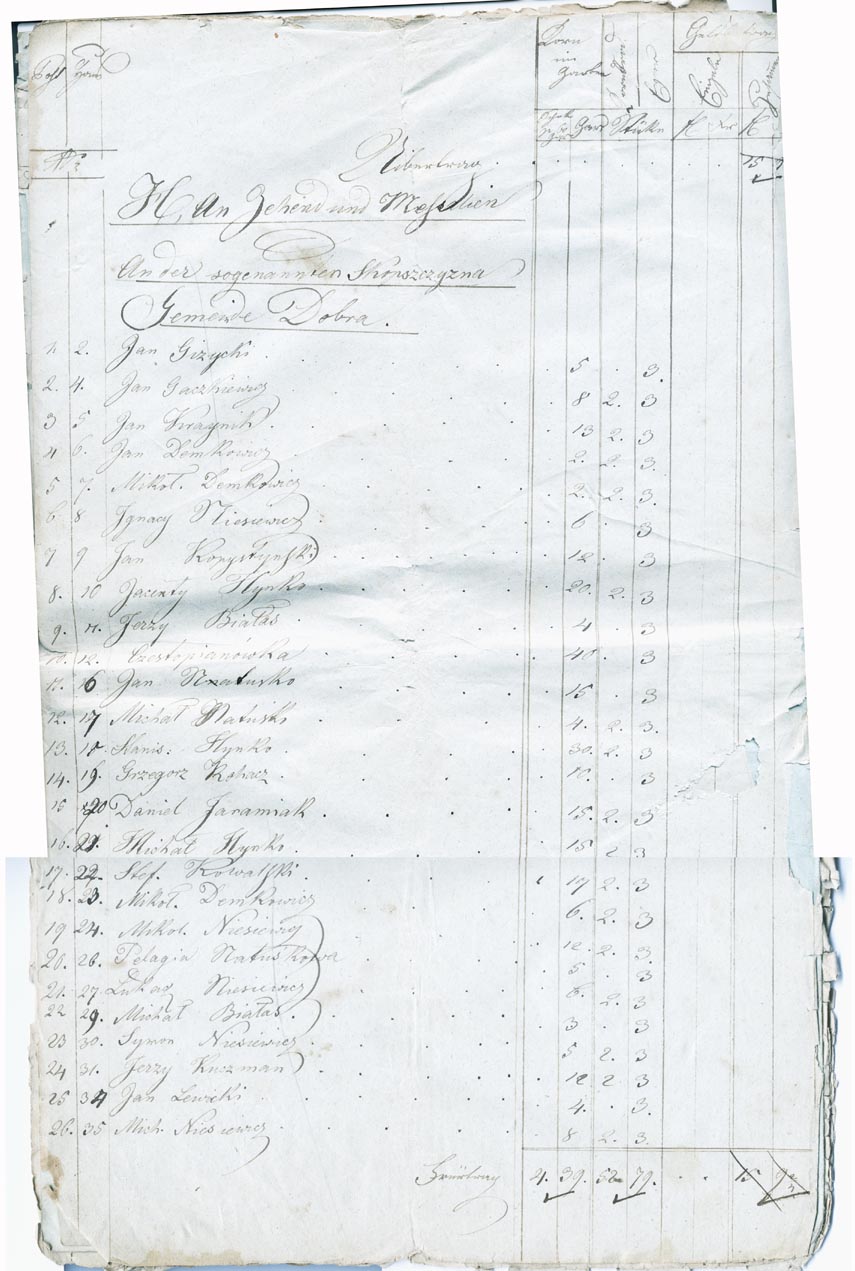 Post Haus
Korn im Garbe
Geld
Einzeln
Garb Stüke fl Xr fl
Nro
Uibertrag . . . . . . . 15
H, An Zehend und Meßalien
An der sogenannten Skopszczyzna
Gemeinde Dobra.
1. 2. Jan Gizycki . . . . 5 . 3.
2. 4. Jan Gaczkiewicz . . . . 8 2. 3
3 5 Jan Kraynik . . . . 13 2. 3
4 6. Jan Demkowicz . . . . 2. 2. 3.
5 7. Mikoł. Demkowicz . . . . 2. 2. 3.
6 8 Jgnacy Niesiewicz . . . . 6 . 3
7 9 Jan Korystyński . . . . 12. . 3
8. 10 Jacenty Hynko . . . . 20. 2. 3
9. 11. Jerzy Białas . . . . 4 . 3
10. 12. Czestopianówka . . . . 40. . 3
11. 16 Jan Natusko . . . . 15 . 3
12. 17 Michał Natusko . . . . 4. 2. 3.
13. 18 Stanis: Hynko . . . . 30. 2. 3
14. 19. Grzegorz Kohacz . . . . 10. . 3
15 20 Daniel Jaramiak . . . . 15. 2. 3
16. 21. Michał Hynko . . . . 15 2 3
17. 22. Stef. Kowalski . . . . 17 2. 3
18. 23. Mikoł. Demkowicz . . . . 6. 2. 3
19 24. Mikoł. Niesiewicz . . . . 12. 2. 3.
20. 26. Pelagia Natuskowa . . . . 5 . 3
21. 27. Lukasz Niesiewicz . . . . 6. 2. 3
22 29. Michał Białas . . . . 3 . 3
23 30. Symon Niesiewicz . . . . 5 2. 3
24 31. Jerzy Kuczman . . . . 12 2 3
25 34 Jan Lewicki . . . . 4. . 3.
26. 35 Mich. Niesiewicz . . . . 8 2. 3.
Fürtrag 4. 39. 52 79. . . 15